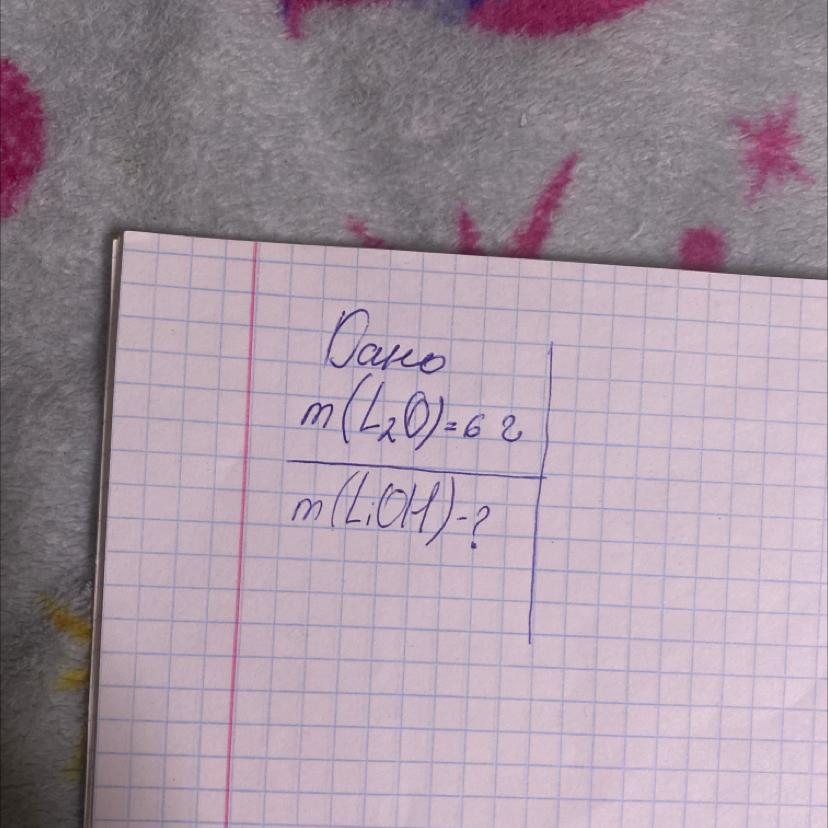 Дано
m(L₂O)=6 г
m(LiOH)-?